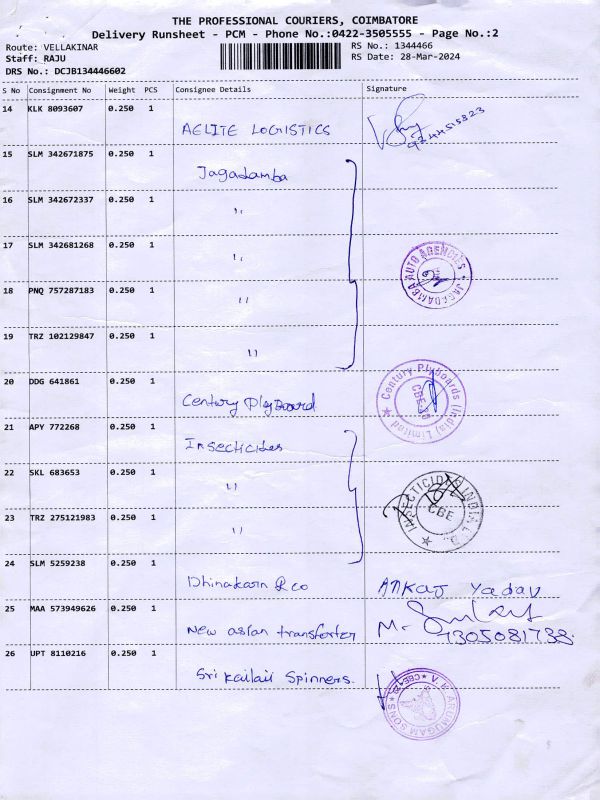 THE PROFESSIONAL COURIERS, COIMBATORE
Delivery Runsheet - PCM - Phone No.:0422-3505555 - Page No.:2
Route: VELLAKINAR RS No.: 1344466
Staff: RAJU RS Date: 28-Mar-2024
DRS No.: DCJB134446602
S No Consignment No Weight PCS Consignee Details Signature
14 KLK 8093607 0.250 1
AELITE LOGISTICS
15 SLM 342671875 0.250 1
Jagadamba
16 SLM 342672337 0.250 1
"
17 SLM 342681268 0.250 1
"
JAGADAMBA AUTO AGENCIES
18 PNQ 757287183 0.250 1
"
19 TRZ 102129847 0.250 1
"
20 DDG 641861 0.250 1
Century PlyBoard
Century Plyboards (India) Limited
21 APY 772268 0.250 1
Insecticides
22 SKL 683653 0.250 1
"
INSECTICIDES INDIA LTD
CBE
23 TRZ 275121983 0.250 1
"
24 SLM 5259238 0.250 1
Dhinakarn & co ANKAJ Yadav
25 MAA 573949626 0.250 1
New asian transferter M-
26 UPT 8110216 0.250 1
Sri Kailaii Spinners.
ARUMUGAM SONS